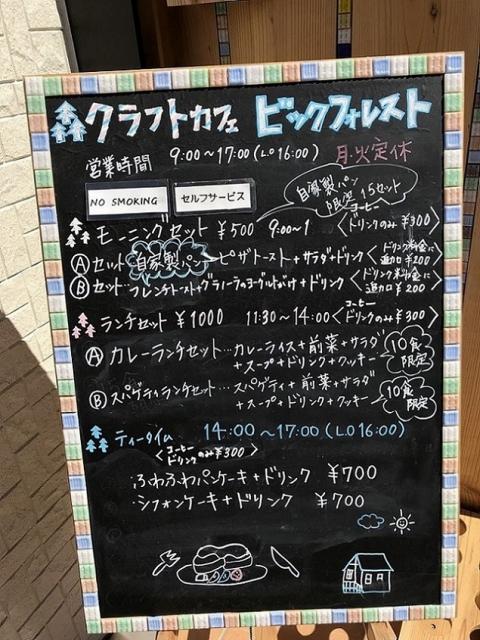 クラフトカフェ ビックフォレスト
営業時間 9:00~17:00 (LO 16:00) 月・火定休
NO SMOKING セルフサービス
自家製パン
限定15セット
モーニングセット ¥500 9:00~1
コーヒー
ドリンクのみ ¥300
Ⓐセット 自家製パン ピザトースト+サラダ+ドリンク
ドリンク料金に
追加 ¥200
Ⓑセット…フレンチトースト+グラノーラのヨーグルトがけ+ドリンク
ドリンク料金に
追加 ¥200
ランチセット ¥1000 11:30~14:00
コーヒー
ドリンクのみ ¥300
Ⓐ カレーランチセット…カレーライス+前菜+サラダ
+スープ+ドリンク+クッキー
10食
限定
Ⓑ スパゲティランチセット…スパゲティ+前菜+サラダ
+スープ+ドリンク+クッキー
10食
限定
ティータイム 14:00~17:00 (LO 16:00)
コーヒー
ドリンクのみ ¥300
ふわふわパンケーキ+ドリンク ¥700
・シフォンケーキ+ドリンク ¥700